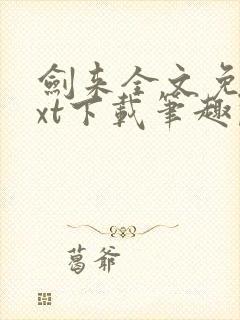 劍来全文免
xt下載筆趣
葛爷